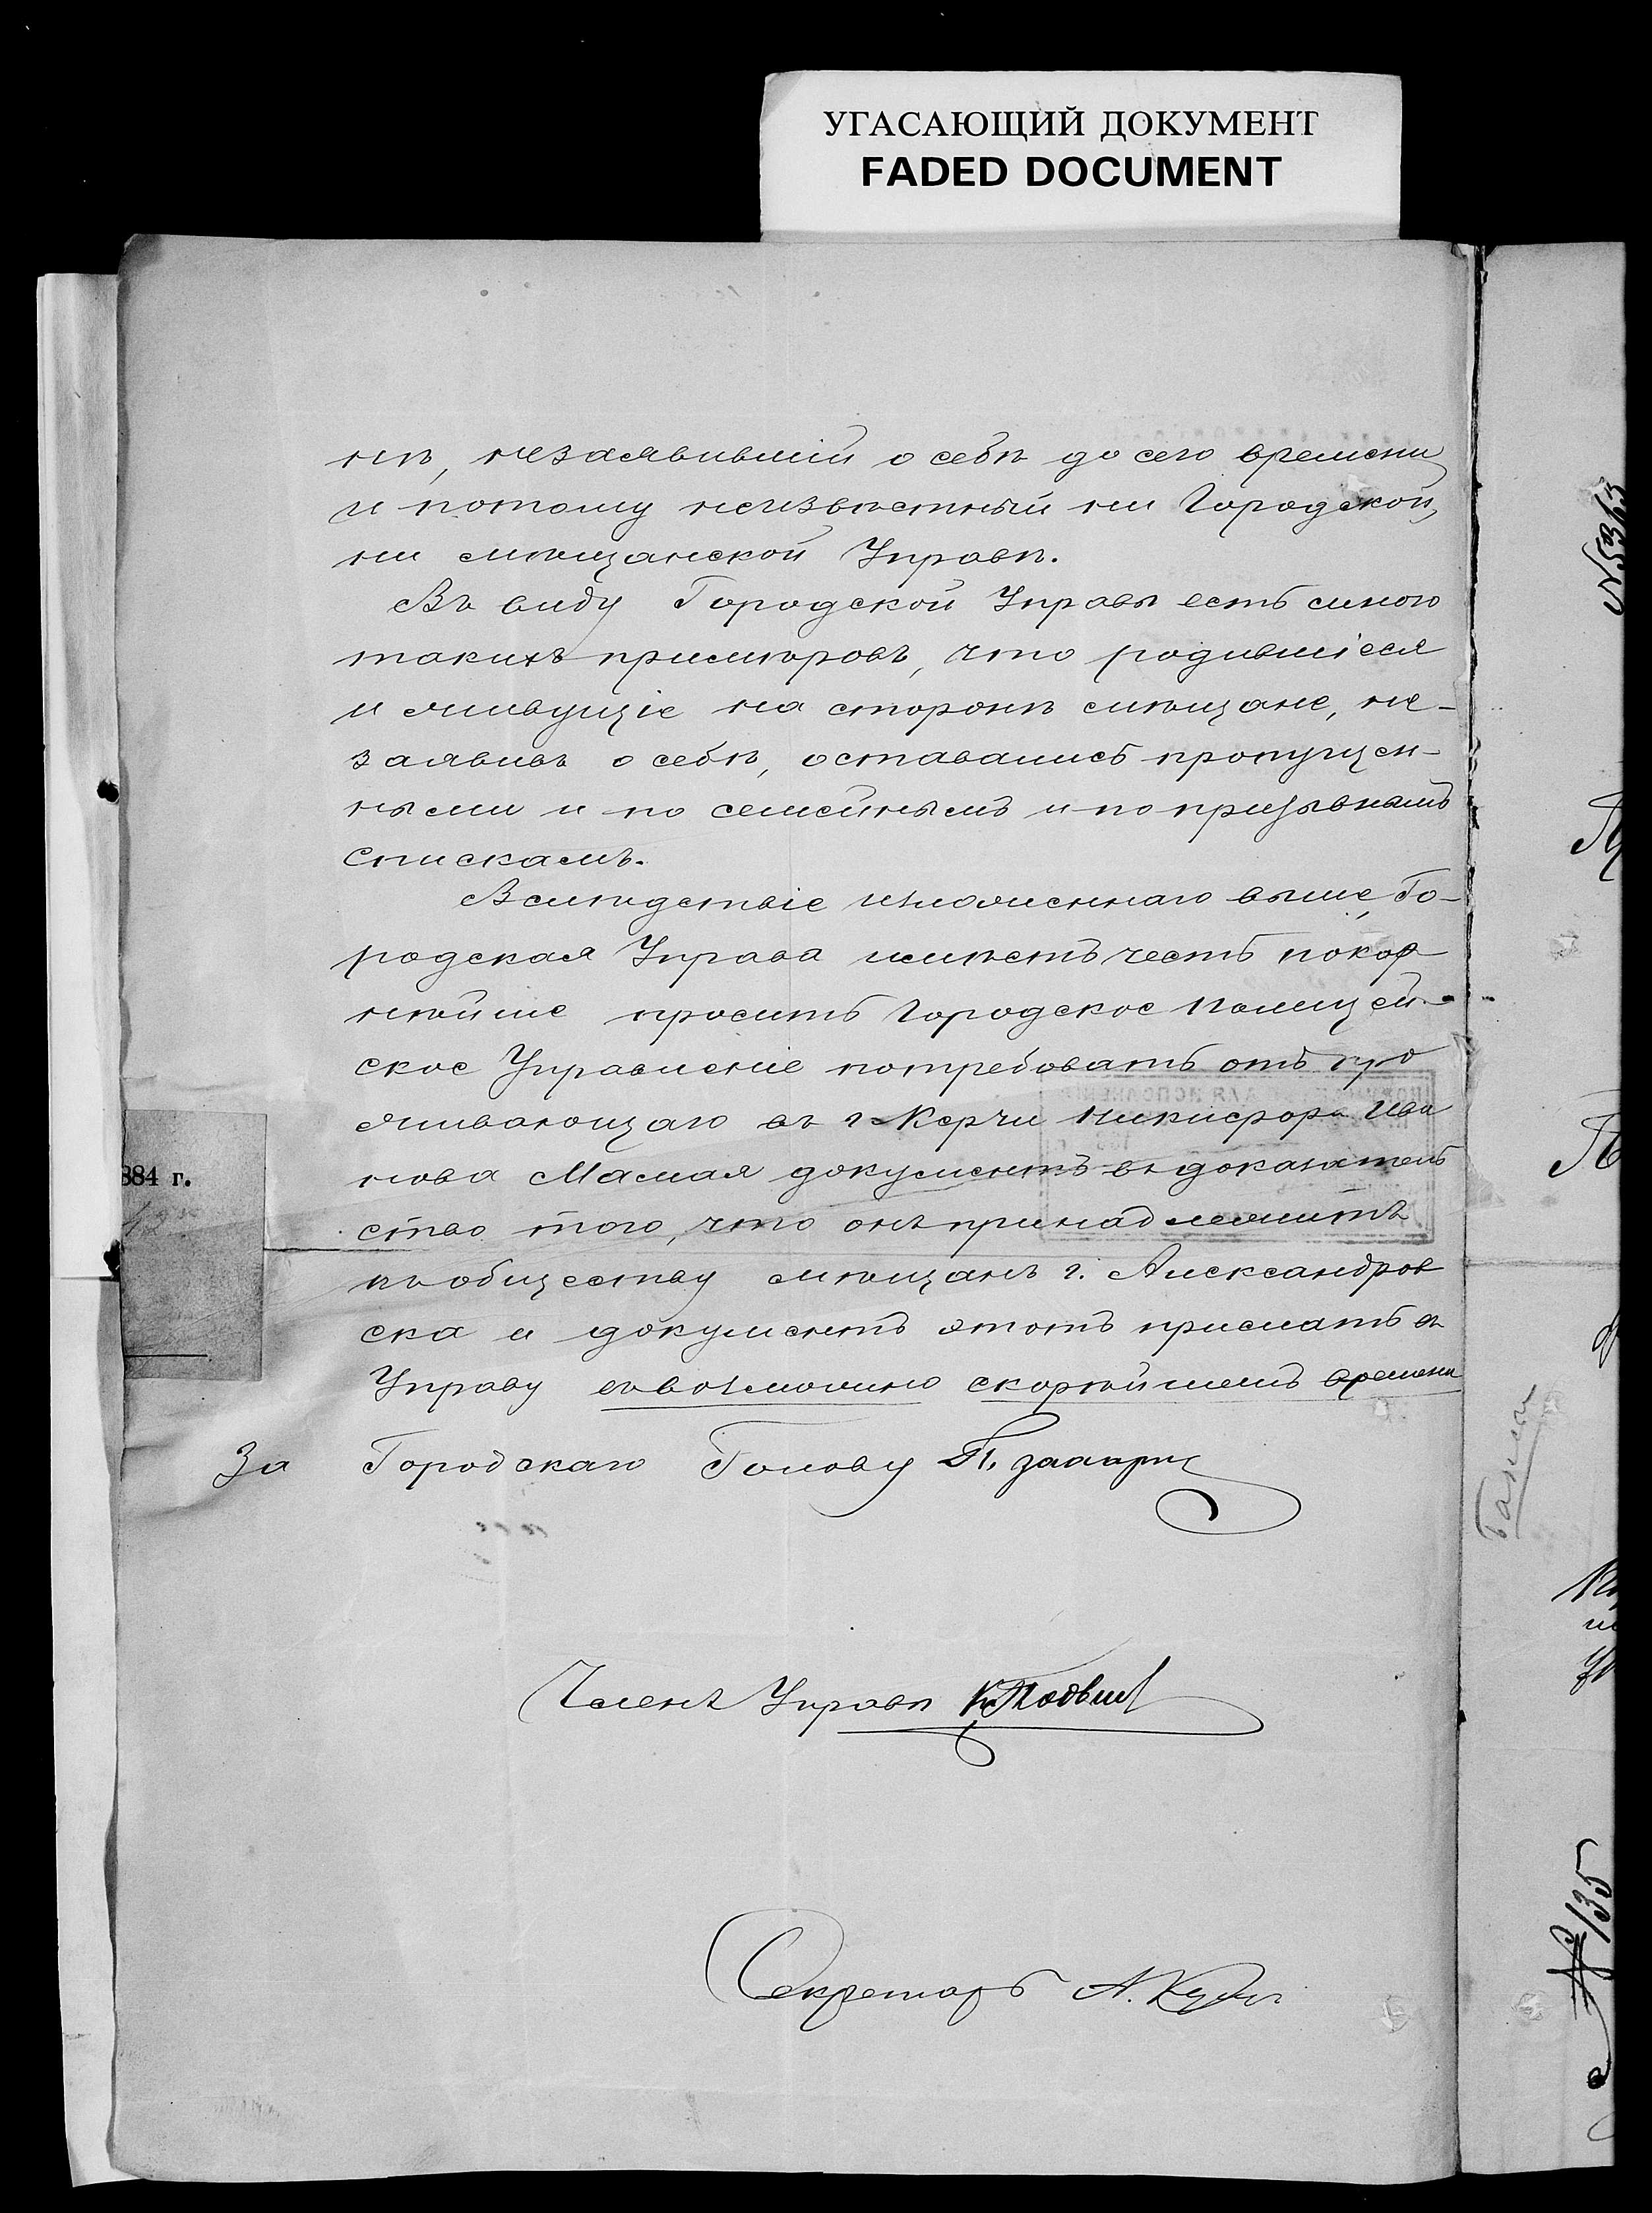 УГАСАЮЩИЙ ДОКУМЕНТ
FADED DOCUMENT
нѣ, незаявившій о себѣ до сего времени
и потому неизвѣстный ни Городской,
ни мѣщанской Управѣ.
Въ виду Городской Управы есть много
такихъ примѣровъ, что родившіеся
и живущіе на сторонѣ мѣщане, не-
заявивъ о себѣ, оставались пропущен-
ными и по семейнымъ и по призывнымъ
спискамъ.
Вслѣдствіе изложеннаго выше, Го-
родская Управа имѣетъ честь покор
нѣйше просить Городское Полицей-
ское Управленіе потребовать отъ про
живающаго въ г. Керчи Никифора Ива
нова Мамая документъ въ доказатель
ство того, что онъ принадлежитъ
къ обществу мѣщанъ г. Александров
ска и документъ этотъ прислать въ
Управу въ возможно скорѣйшемъ времени
За Городскаго Голову П.
Членъ Управы
Секретарь А.
884 г.
№5363
№135